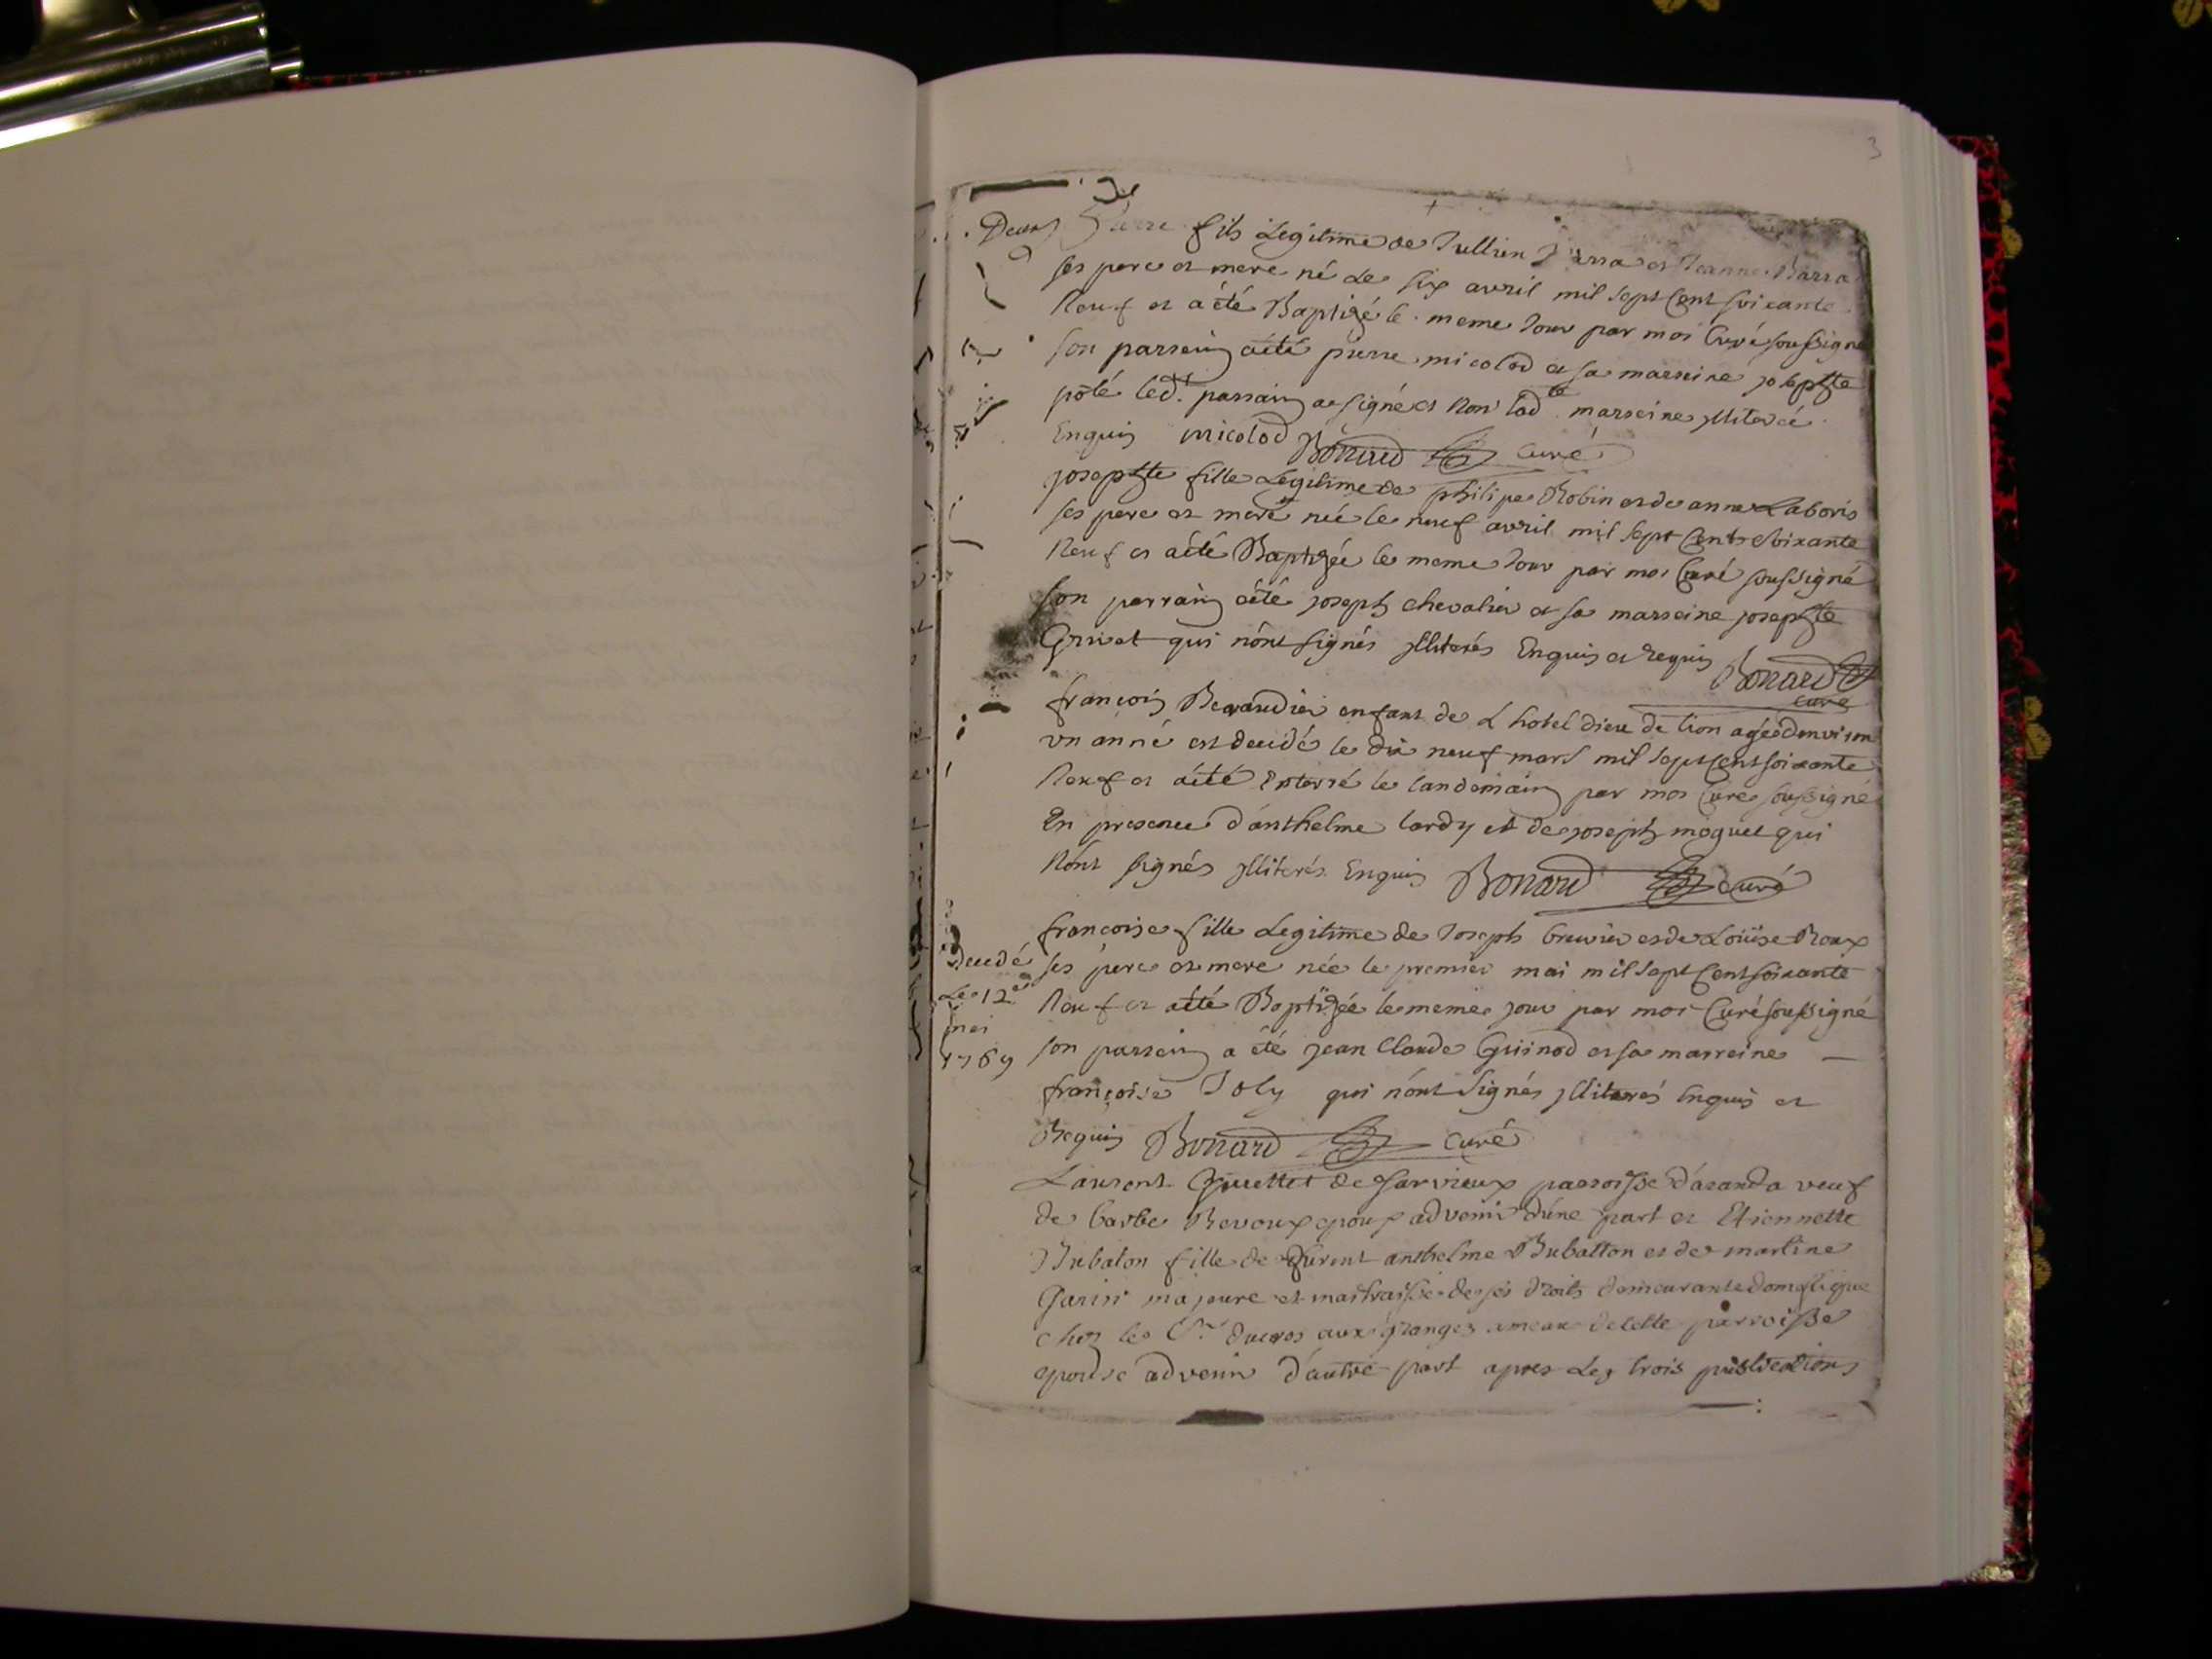 3
fils Legitime de Jullien et Jeanne Barra
ses pere et mere né Le six avril mil sept Cent soixante
Neuf et a été Baptizé le meme Jour par moi Curé soussigné
son parrein a été pierre micolod et sa marreine josephte
poté led.t parrain a signé et Non lad.te marreine jlliterée
Enquis micolod Bonard curé
josephte fille Legitime de philipe Robin et de anne Laboris
ses pere et mere née le neuf avril mil sept Cent soixante
Neuf et a été Baptizée le meme Jour par moi Curé soussigné
son parrain a été joseph chevalier et sa marreine josephte
Grivet qui n'ont signés jlliterés Enquis et requis Bonard
curé
françois Beraudier enfant de L hotel dieu de lion agée d'environ
un anné est decidé le dix neuf mars mil sept Cent soixante
Neuf et a été Enterré le landemain par moi Curé soussigné
En presence d'anthelme lardy et de joseph moguet qui
N'ont signés jlliterés Enquis Bonard curé
francoise fille Legitime de Joseph bruvier et de Loüise Roux
Decedé ses pere et mere née le premier mai mil sept Cent soixante
Le 12e Neuf et a été Baptizée le meme jour par moi Curé soussigné
mai
1769 son parrein a été jean Claude Guinod et sa marreine
françoise Joly qui n'ont signés jlliterés Enquis et
Requis Bonard curé
Laurent Guettet de Sarvieux parroisse d'aranda veuf
de barbe Revoux epoux advenir d'une part et Etiennette
Bubaton fille de anthelme Bubatton et de martine
Garin majeure et maitraisse de ses droits demeurante domestique
chez le Sr. ducros aux granges ameau de cette parroisse
epouse advenir d'autre part apres Les trois publications